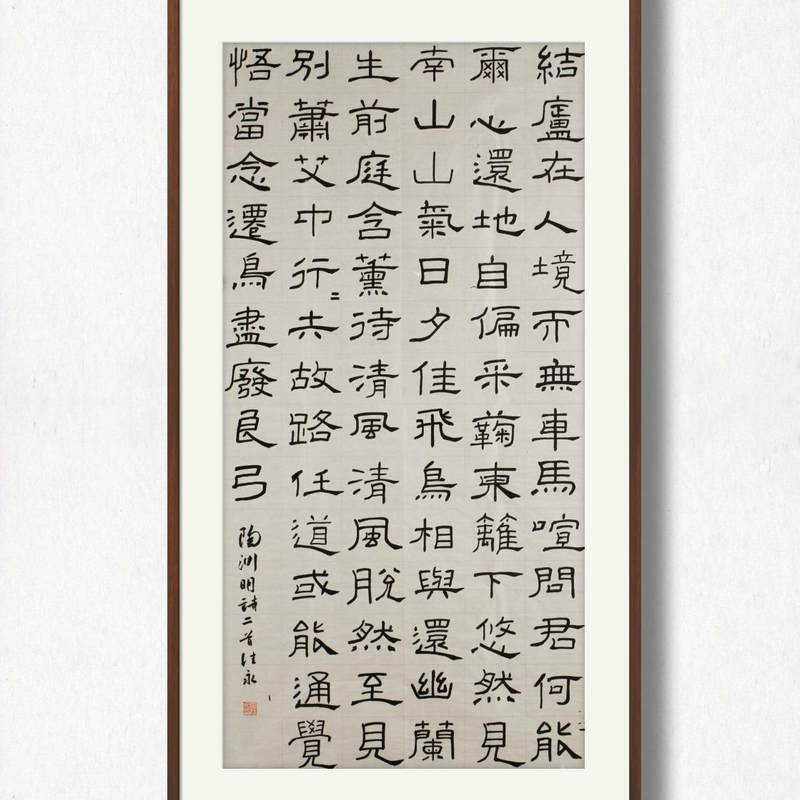 結廬在人境而無車馬喧問君何能
爾心還地自偏采蘜東籬下悠然見
南山山氣日夕佳飛鳥相與還幽蘭
生前庭含薰待清風清風脫然至見
別蕭艾中行〻去故路任道或能通覺
悟當念遷鳥盡廢良弓
陶淵明詩二首佳永